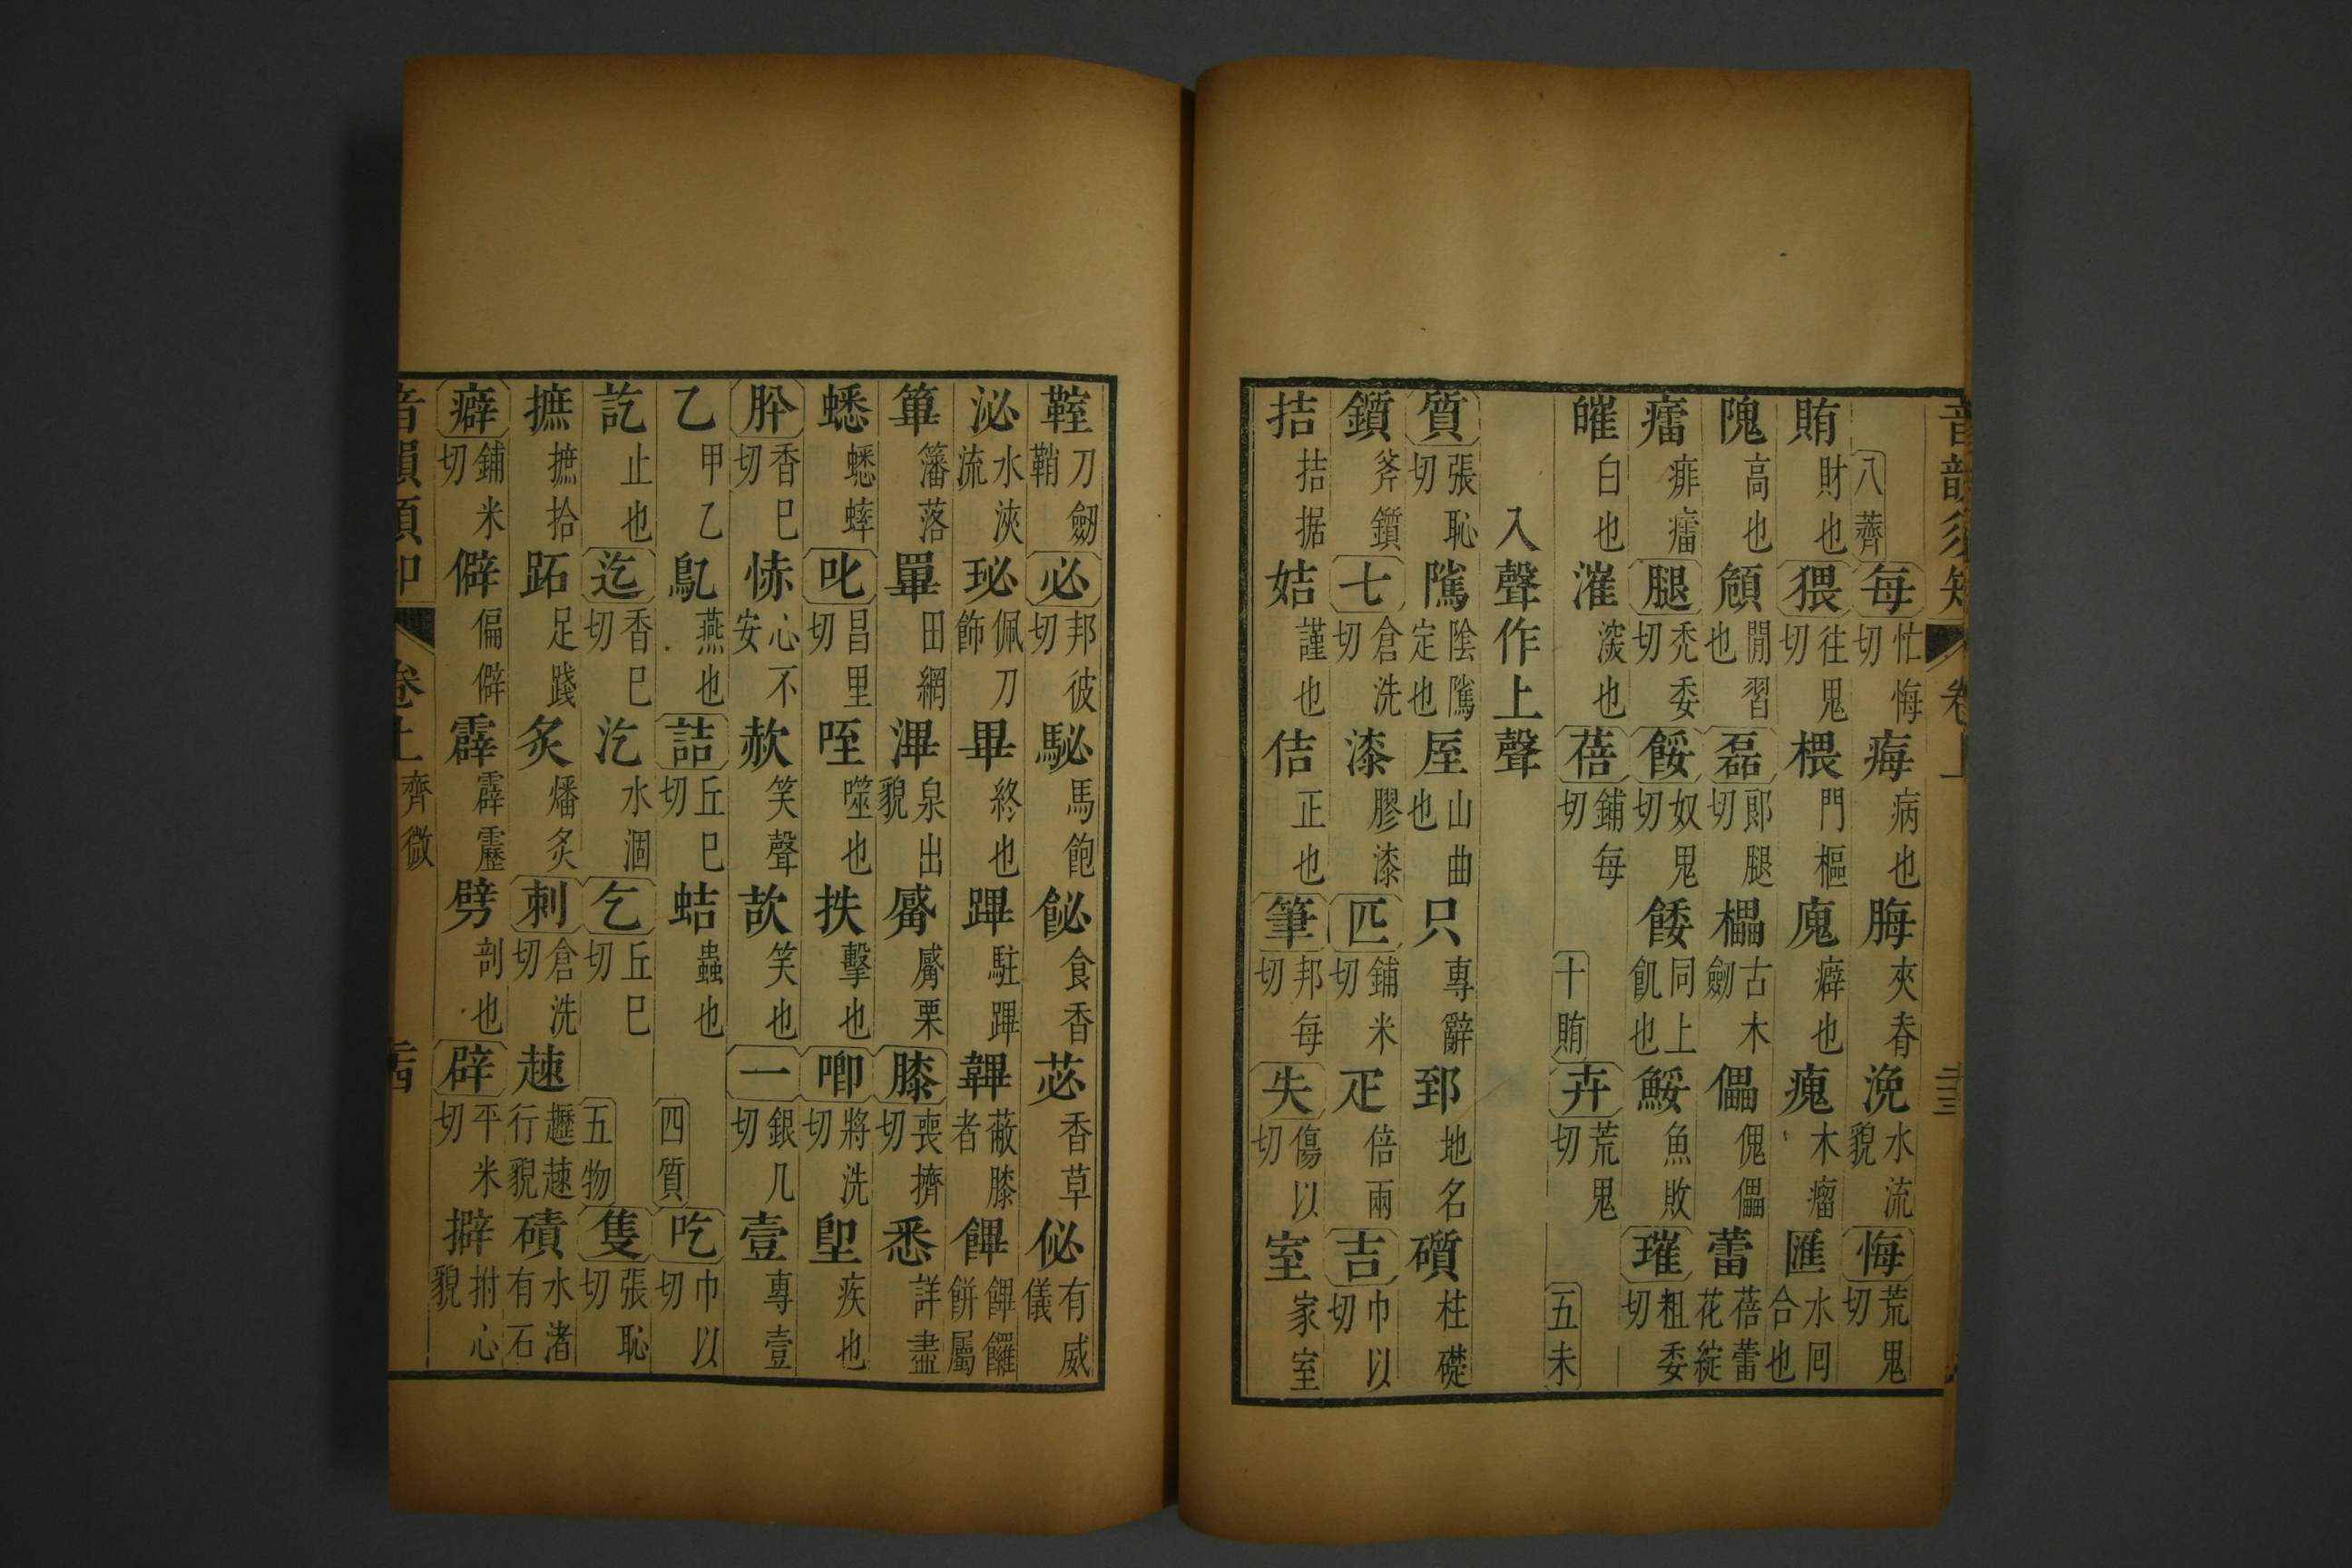 音韻須知 卷上
八薺 每忙悔切 痗病也 脢夾脊 浼水流貌 悔荒鬼切
賄財也 猥往鬼切 椳門樞 廆癖也 瘣木瘤 匯水回合也
隗高也 頠閒習也 磊郎腿切 櫑古木劒 儡傀儡 蕾蓓蕾花綻
癗痱癗 腿禿委切 餒奴鬼切 餧同上飢也 鮾魚敗 璀粗委切
皠白也 漼深也 蓓鋪每切 十賄 卉荒鬼切 五未
入聲作上聲
質張恥切 隲陰隲定也 厔山曲也 只專辭 郅地名 礩柱礎
鑕斧鑕 七倉洗切 漆膠漆 匹鋪米切 疋倍兩 吉巾以切
拮拮据 姞謹也 佶正也 筆邦每切 失傷以切 室家室
鞊刀劒鞘 必邦彼切 駜馬飽 飶食香 苾香草 佖有威儀
泌水浹流 珌佩刀飾 畢終也 蹕駐蹕 韠蔽膝者 饆饆饠餅屬
篳籓落 罼田網 滭泉出貌 觱觱栗 膝喪擠切 悉詳盡
蟋蟋蟀 叱昌里切 咥噬也 抶擊也 唧將洗切 堲疾也
肸香巳切 恷心不安 欪笑聲 欯笑也 一銀几切 壹專壹
乙甲乙 鳦燕也 詰丘巳切 蛣蟲也 四質 吃巾以切
訖止也 迄香巳切 汔水涸 乞丘巳切 五物 隻張恥切
摭摭拾 跖足踐 炙燔炙 刺倉洗切 趚趯趚行貌 磧水渚有石
癖鋪米切 僻偏僻 霹霹靂 劈剖也 辟平米切 擗拊心貌
音韻須知 卷上 齊微